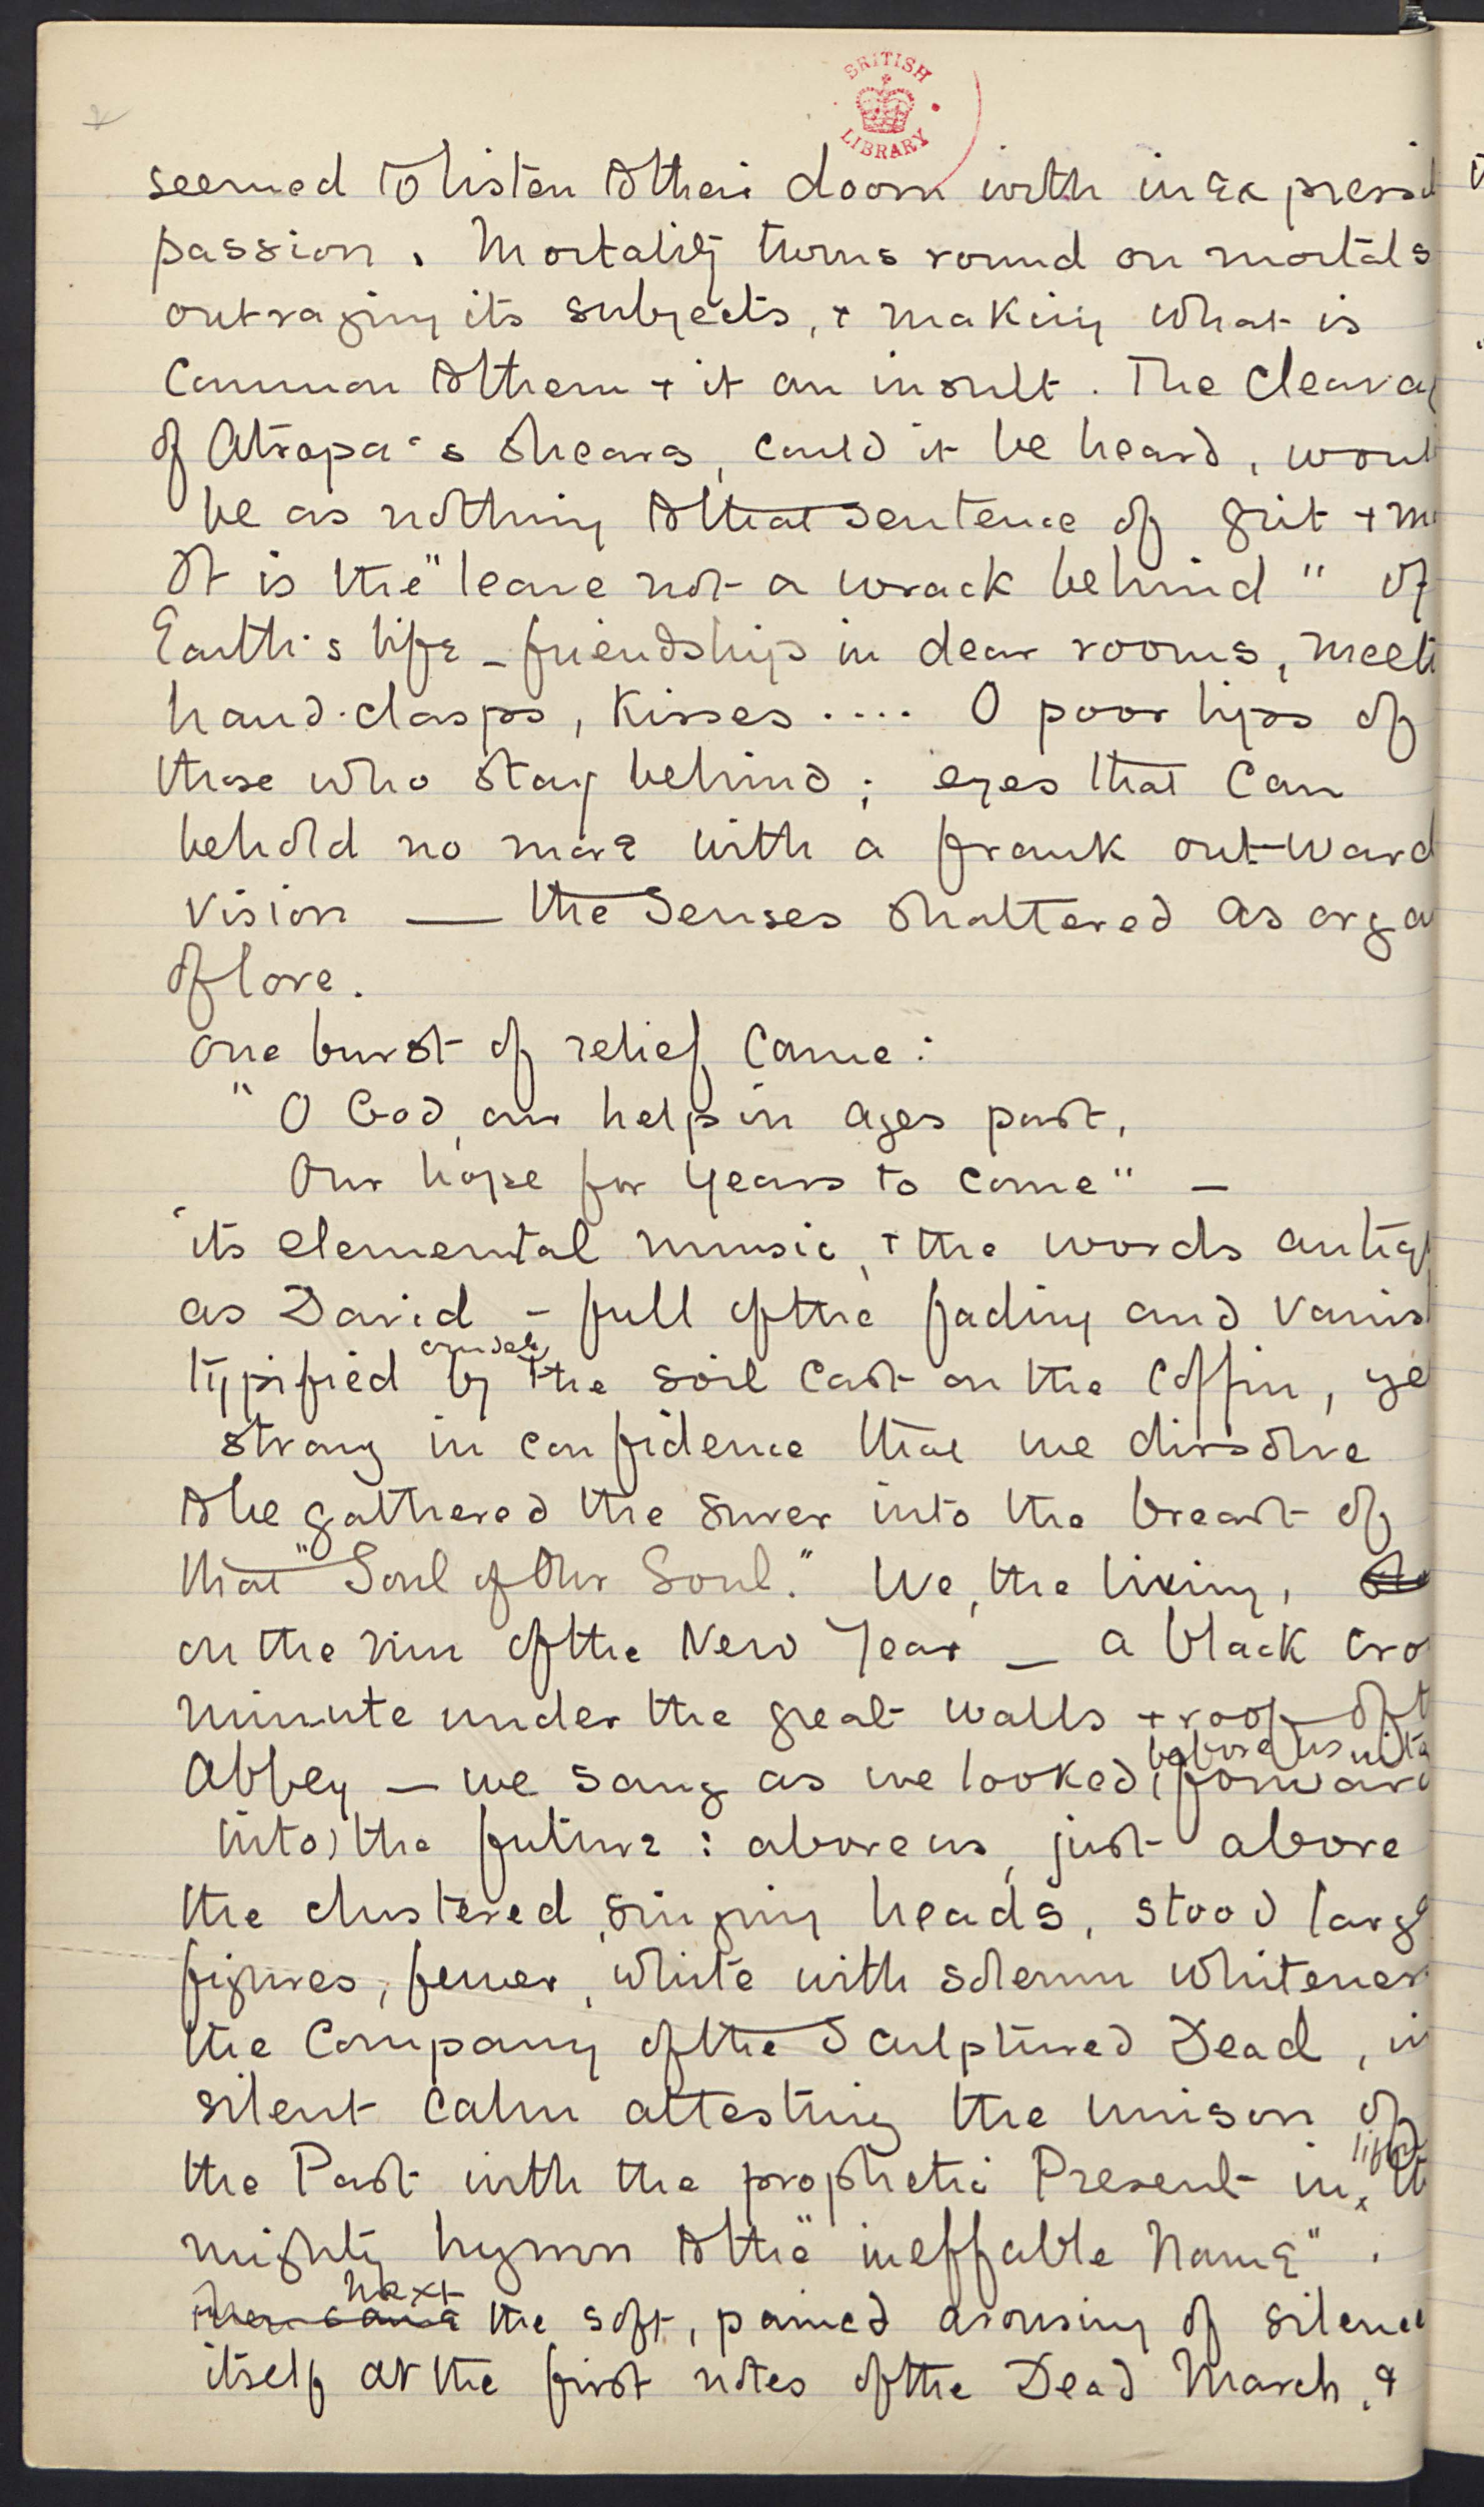 BRITISH
LIBRARY
seemed to listen to their doom with inexpressi
passion. Mortality turns round on mortals
outraging its subjects, + making what is
common to them + it an insult. The cleava
of Atropa's shears, could it be heard, woul
be as nothing to that sentence of grit + m
It is the "leave not a wrack behind" of
Earth's life - friendships in dear rooms, meeti
hand-clasps, kisses .... O poor lips of
those who stay behind; eyes that can
behold no more with a frank outward
vision — the senses shattered as orga
of love.
One burst of relief came:
"O God, our help in ages past,
Our hope for years to come" —
its elemental music, + the words antiq
as David - full of the fading and vanis
crudely
typified by the soil cast on the coffin, ye
strong in confidence that we dissolve
to be gathered the surer into the breast of
that "Soul of Our Soul." We, the living,
on the rim of the New Year — a black cro
minute under the great walls + roof of t
before us
Abbey — we sang as we looked, forward
into) the future: above us, just above
the clustered, singing heads, stood large
figures, fewer, white with solemn whiteness
the Company of the Sculptured Dead, in
silent calm attesting the unison of
the Past with the prophetic Present in
mighty hymn to the "ineffable Name".
next
then came the soft, pained arousing of silence
itself at the first notes of the Dead March, &